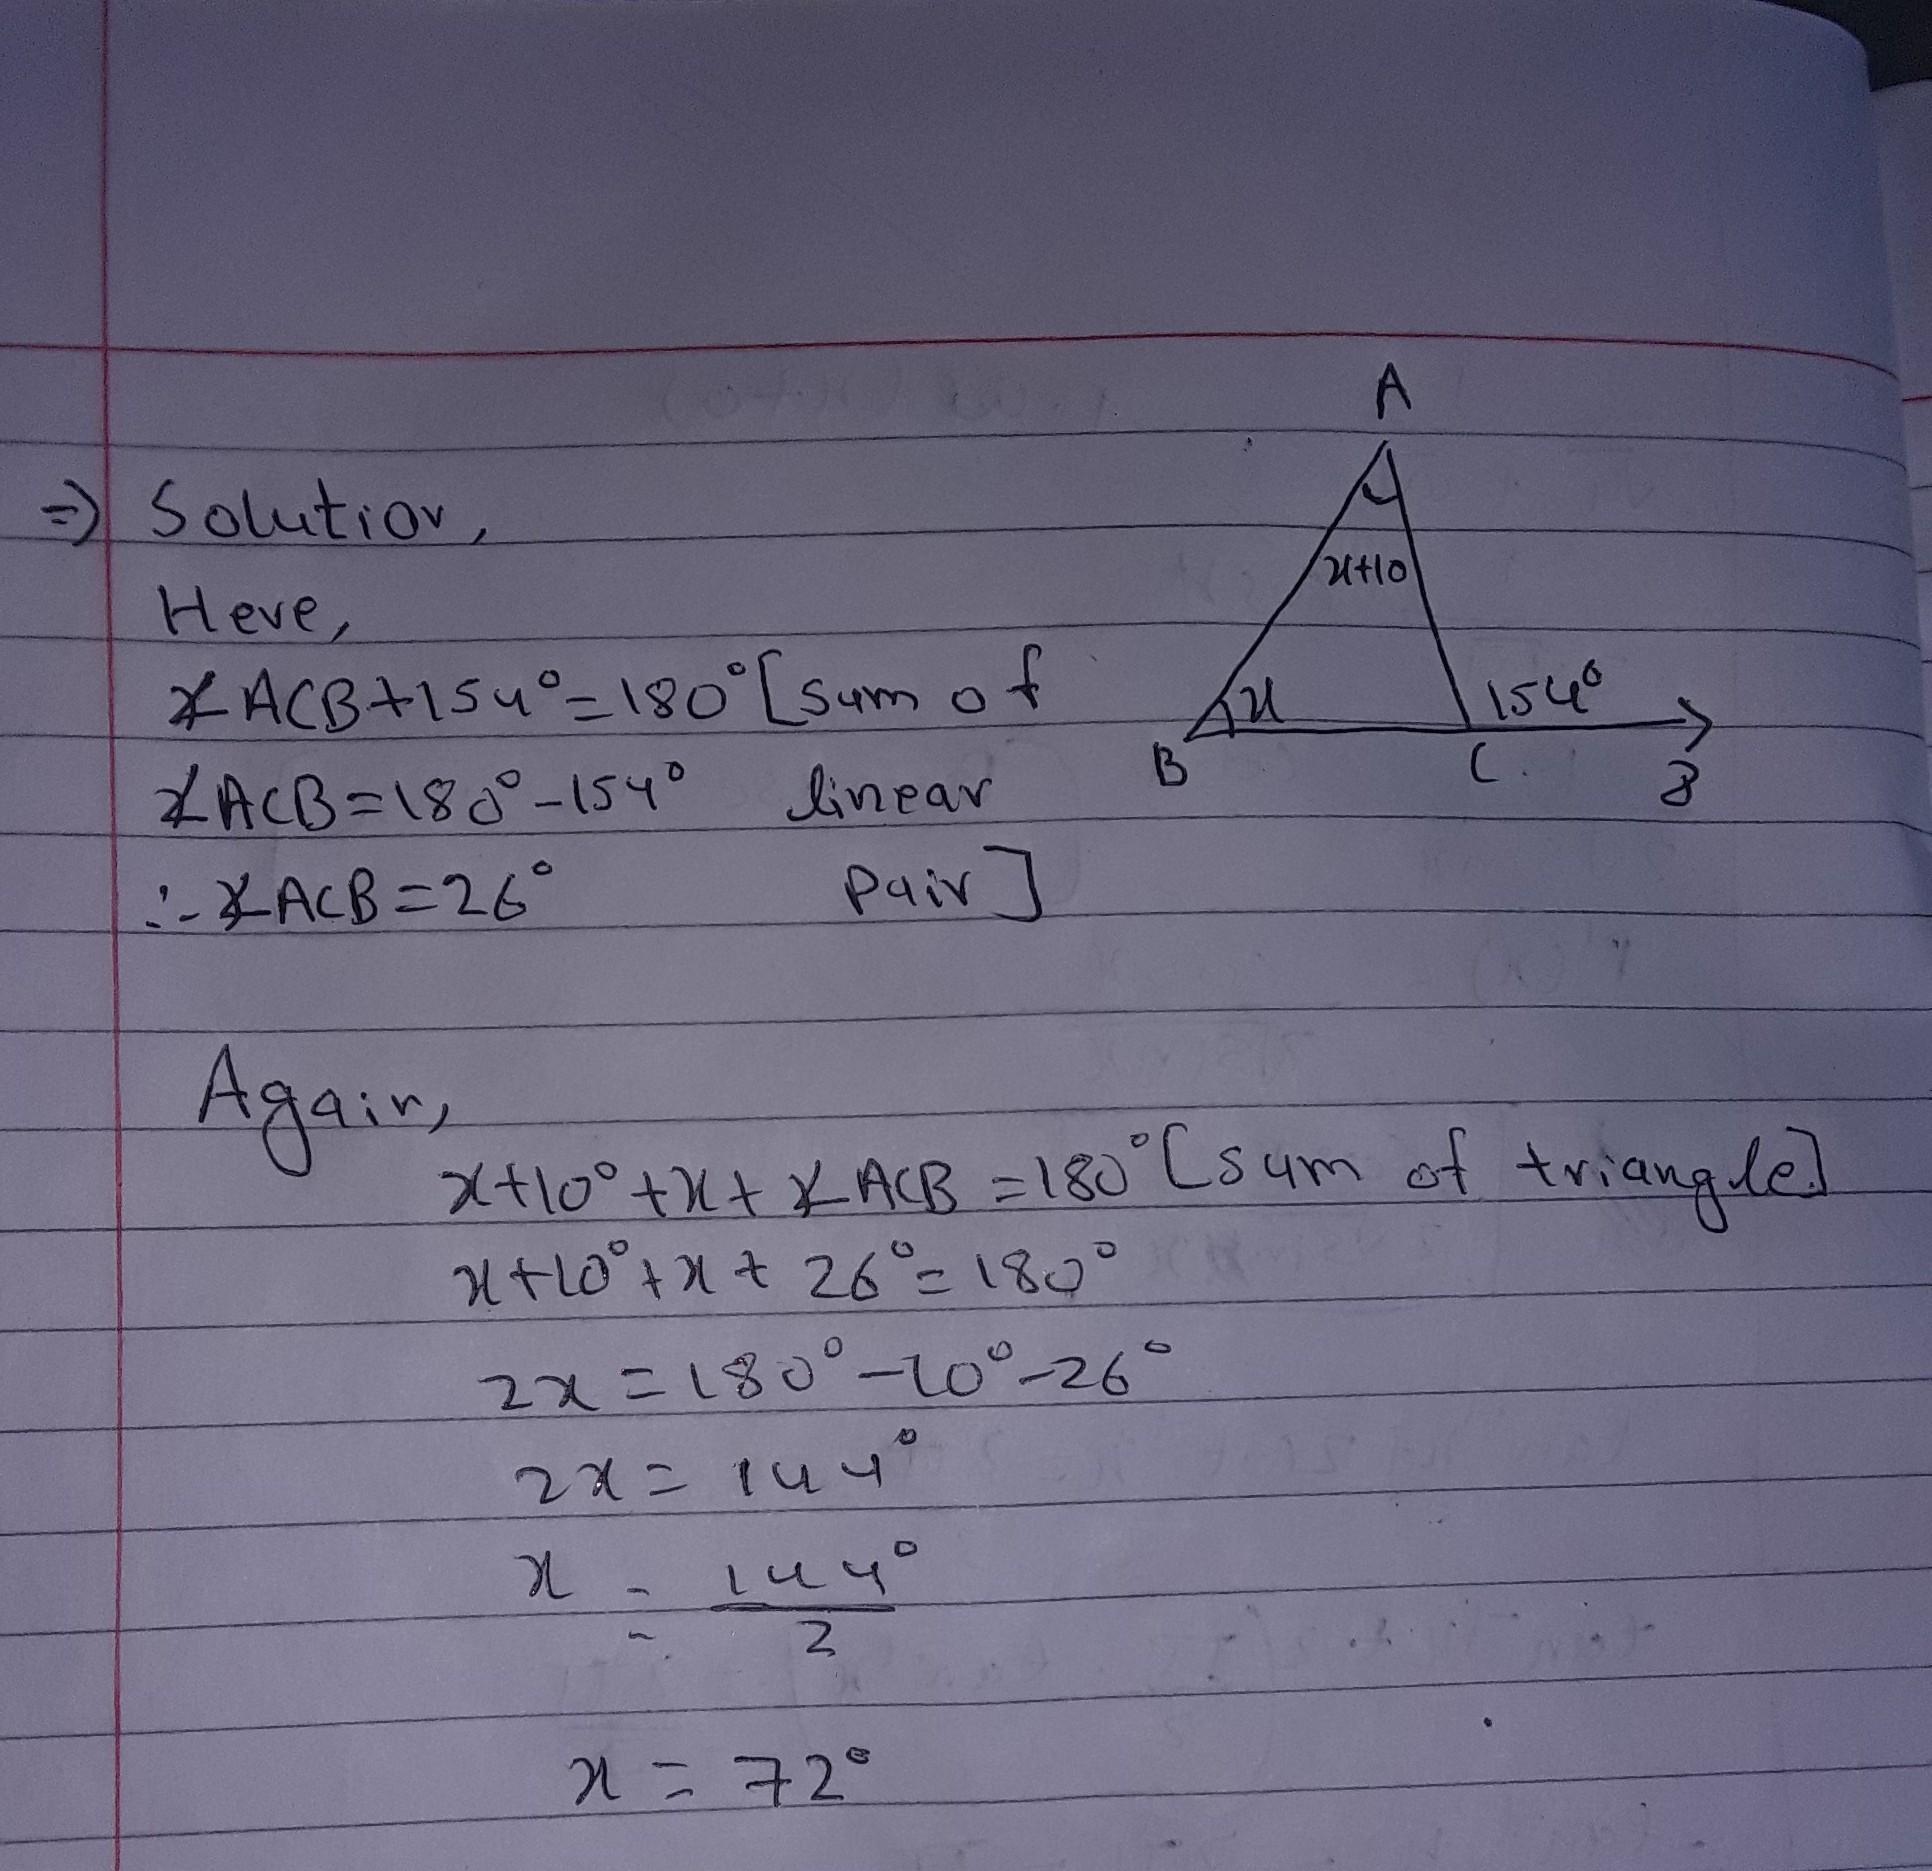 A
⇒ Solution,
x+10
Here,
∡ACB+154°=180° [sum of
x
154°
∡ACB=180°-154° linear
B
C
∴ ∡ACB=26° pair]
Again,
x+10°+x+∡ACB=180° [sum of triangle]
x+10°+x+26°=180°
2x=180°-10°-26°
2x=144°
x=144°/2
x=72°